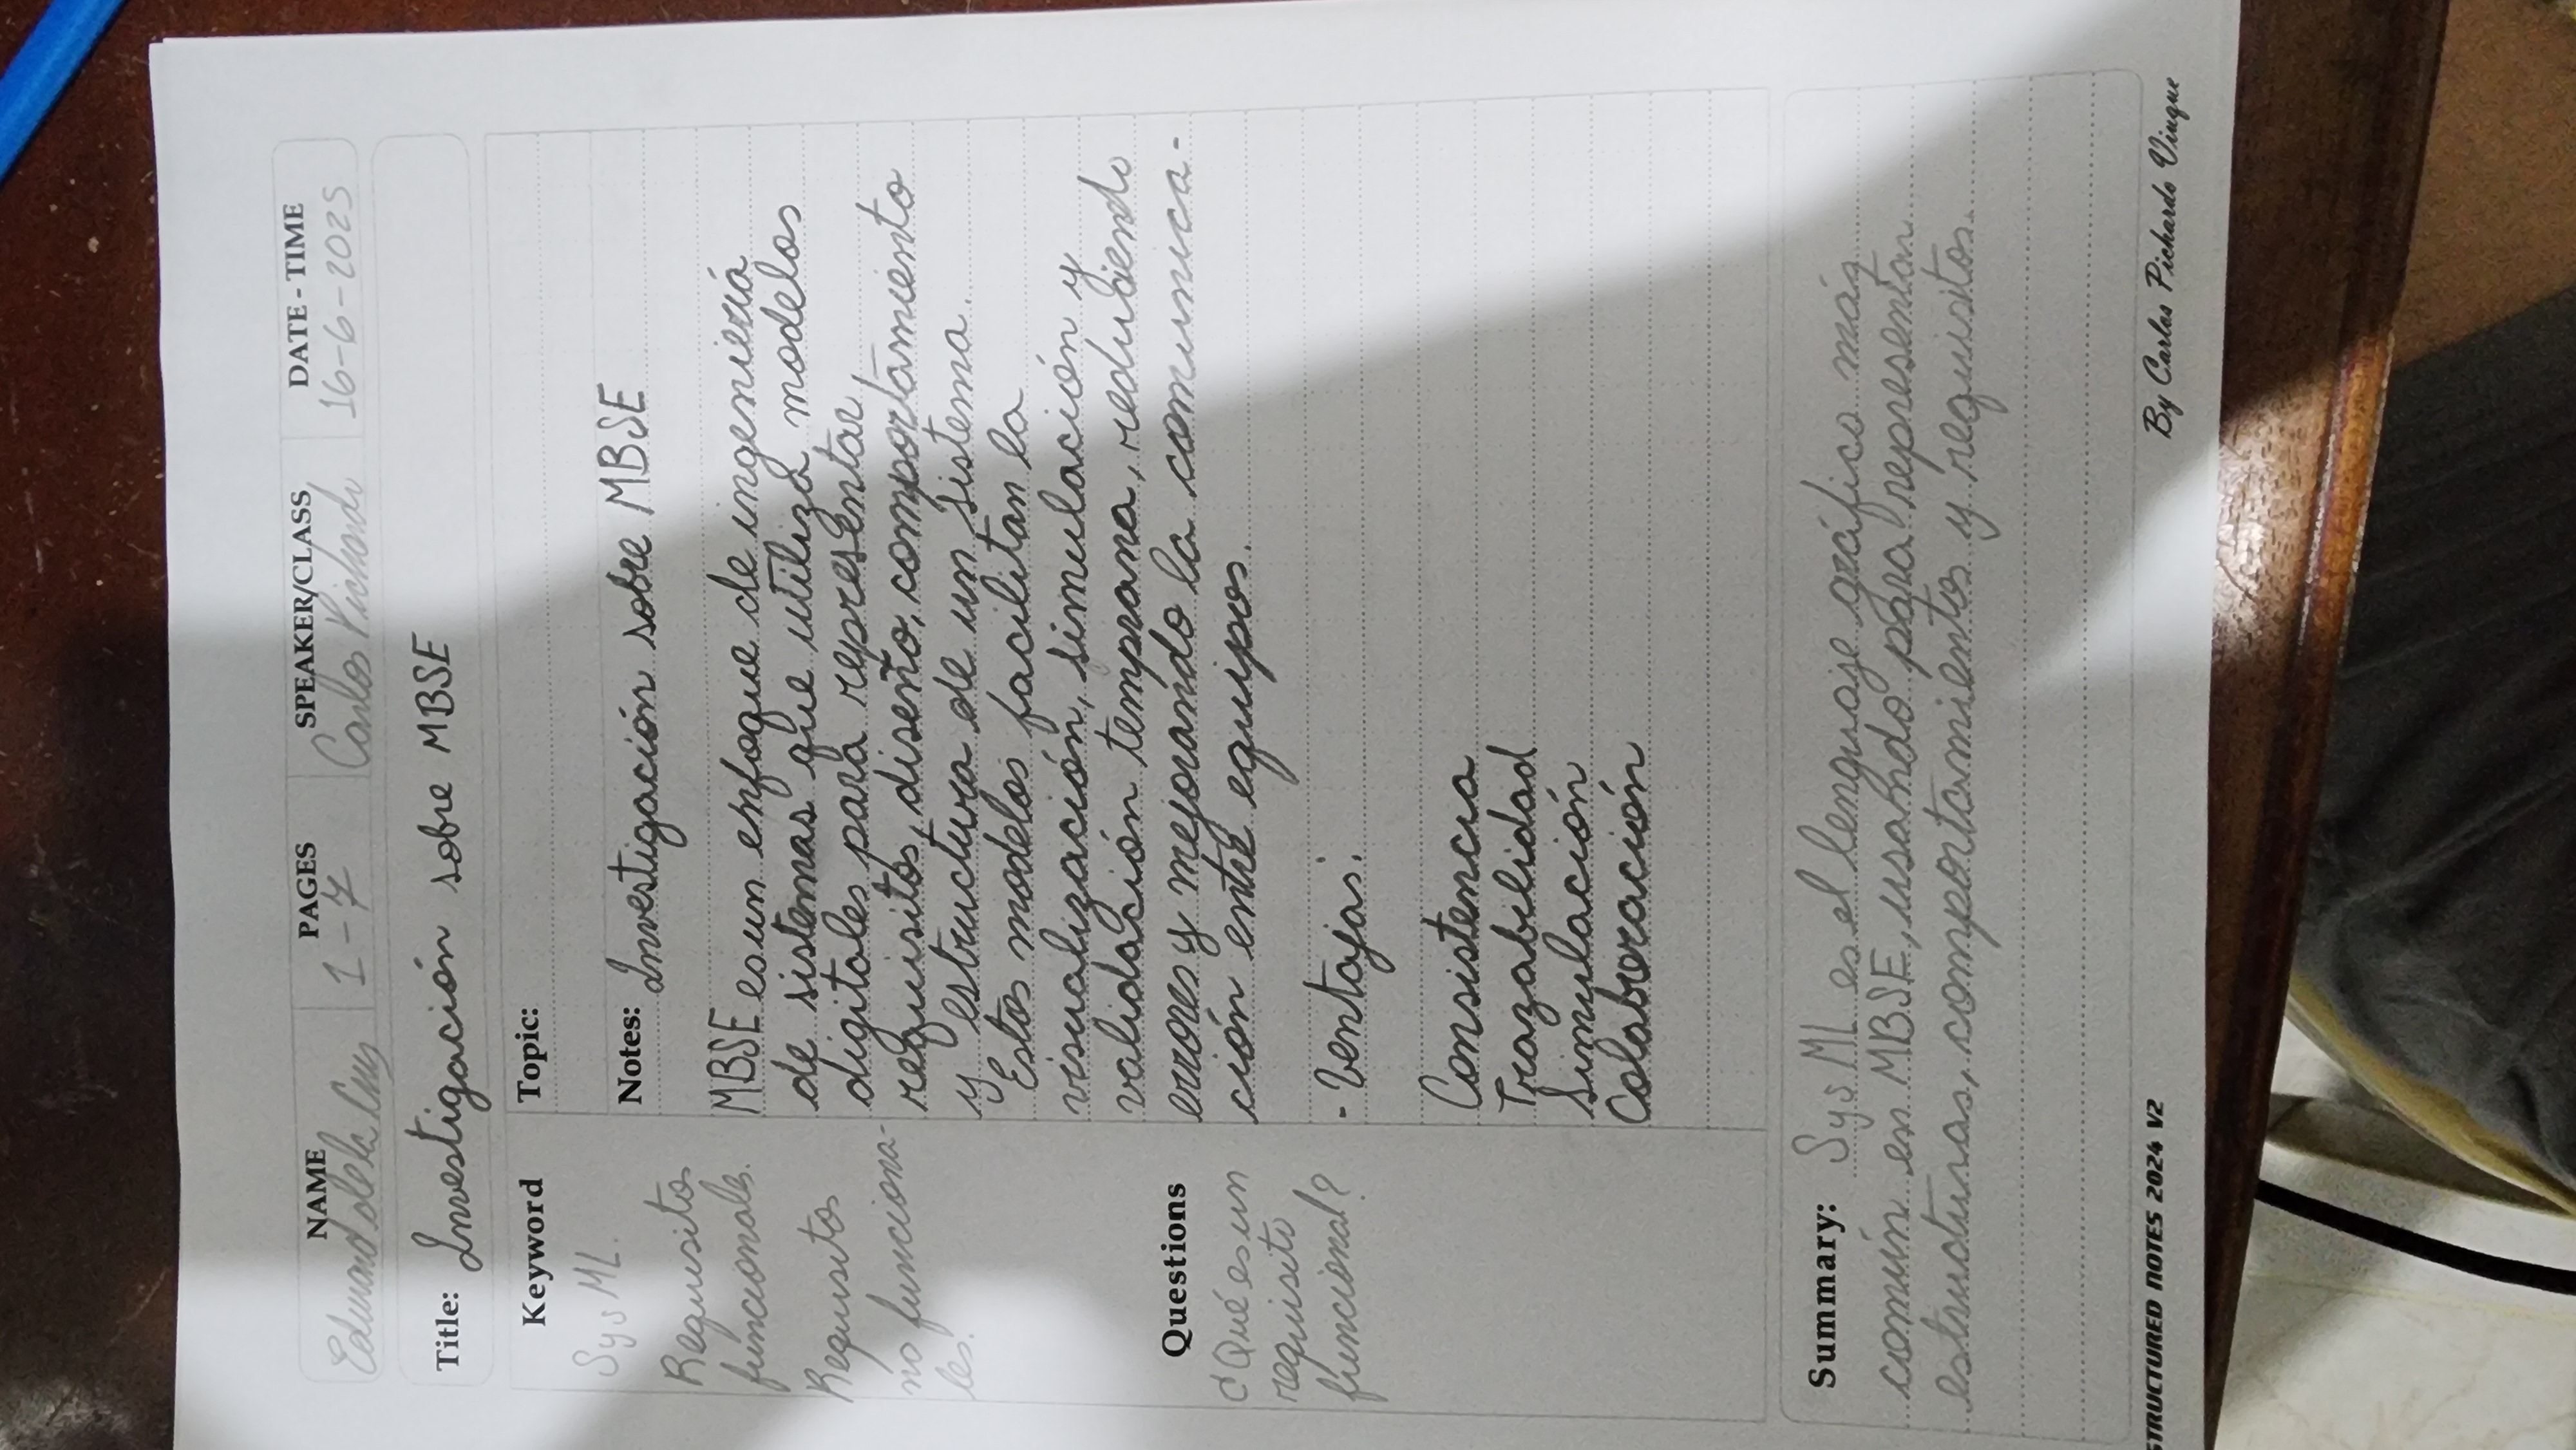 NAME PAGES SPEAKER/CLASS DATE - TIME
Edward de la Cruz 1-7 Carlos Pichardo 16-6-2025
Title: Investigación sobre MBSE
Keyword
SysML.
Requisitos
funcionales.
Requisitos
no funciona-
les.
Questions
¿Qué es un
requisito
funcional?
Topic:
Notes: Investigación sobre MBSE
MBSE es un enfoque de ingeniería
de sistemas que utiliza modelos
digitales para representar,
requisitos, diseño, comportamiento
y estructura de un sistema.
Estos modelos facilitan la
visualización, simulación y
validación temprana, reduciendo
errores y mejorando la comunica-
ción entre equipos.
- Ventajas:
Consistencia
Trazabilidad
Simulación
Colaboración
Summary: SysML es el lenguaje gráfico más
común en MBSE, usando para representar
estructuras, comportamientos y requisitos.
STRUCTURED NOTES 2024 V2
By Carlos Pichardo Viuque